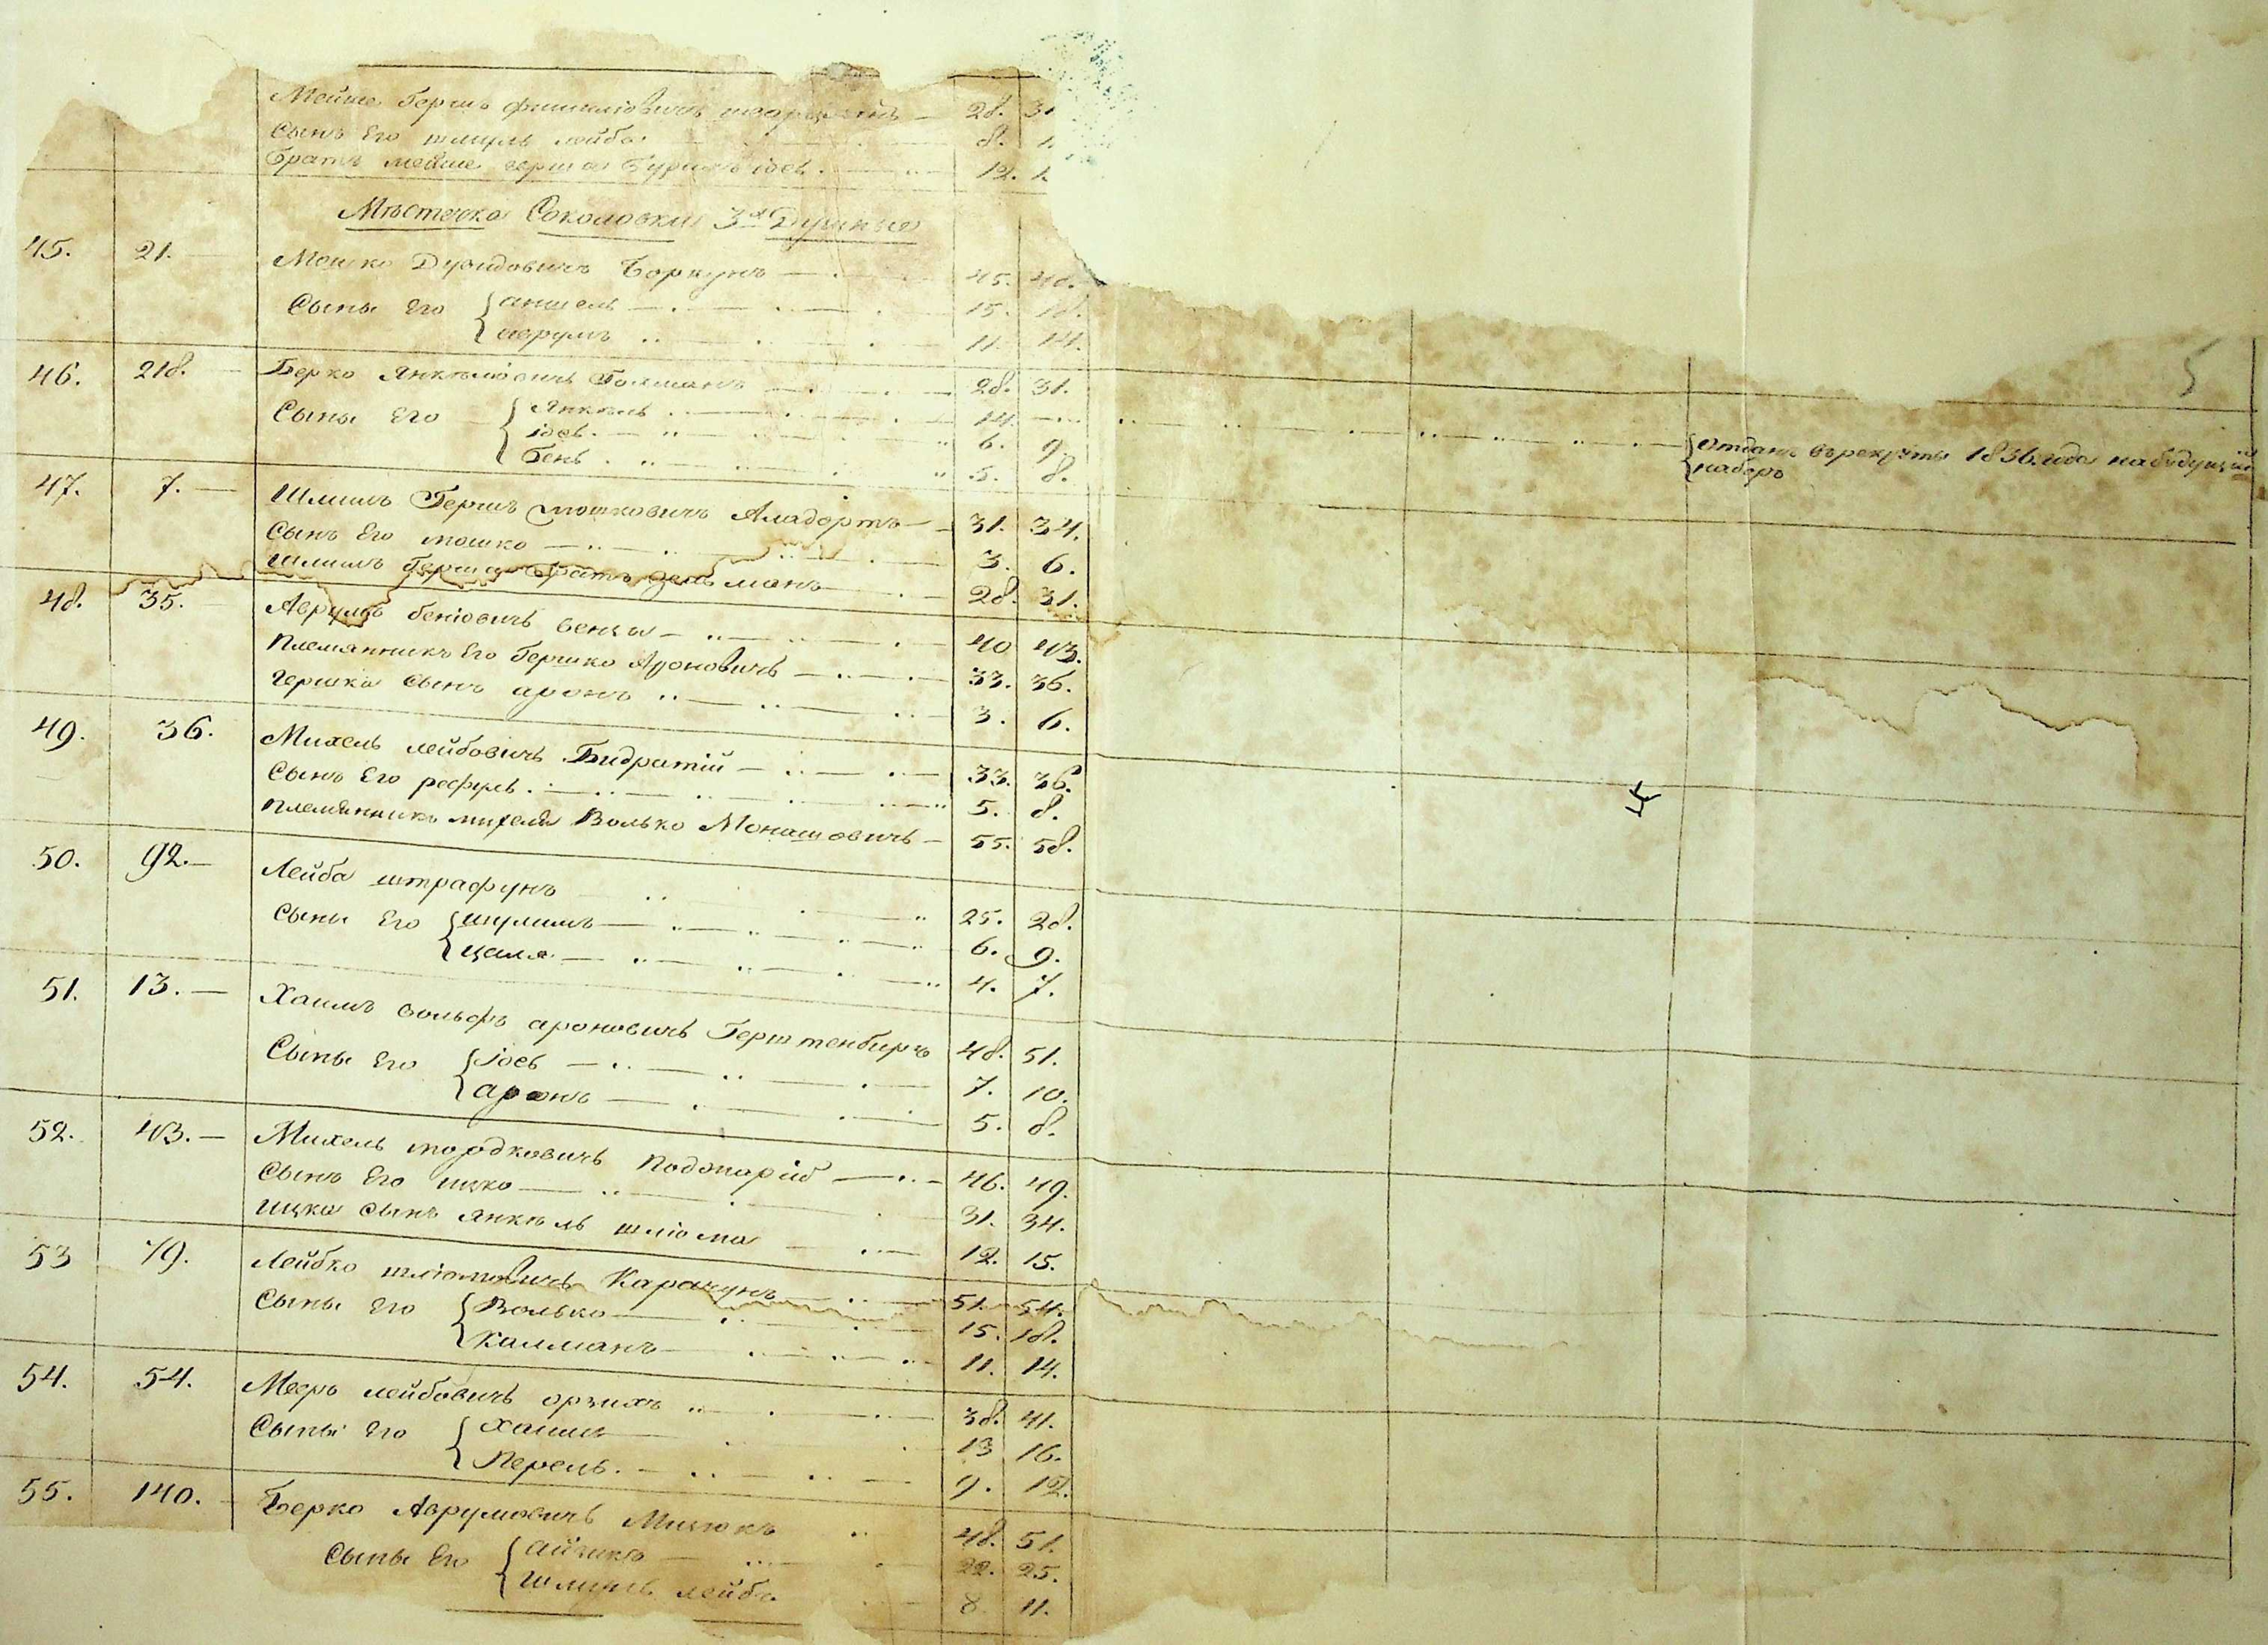 Мейше Герш 28. 31
Сынъ Его шмуль лейба 8. 1
Братъ мейше герша іось. 12. 1
Мѣстечка Соколовки 3х Душные
45. 21. Мошко Дувидовичъ Боркунъ 45. 48.
Сыны Его аншель 15. 18.
аврумъ 11. 14.
46. 218. Берко Янкелювичъ 28. 31.
Сыны Его Янкель 14.
Отданъ въ рекруты 1836. года на будущій
іось. 6. 9.
наборъ
Бень 5. 8.
47. 7. Шлимъ Гершъ мошковичъ Аладортъ 31. 34.
Сынъ Его мошко 3. 6.
Шлимъ Герша братъ зельманъ 28. 31.
48. 35. Аврумъ беніовичъ 40 43.
Племянникъ Его Гершко Ароновичъ 33. 36.
гершка сынъ аронъ 3. 6.
49. 36. Михель лейбовичъ Бидратій 33. 36.
Сынъ Его рефуль 5. 8.
племянникъ михеля Волько Монашовичъ 55. 58.
50. 92. Лейба штрафунъ 25. 28.
Сыны Его шулимъ 6. 9.
цаля 4. 7.
51. 13. Хаимъ вольфъ ароновичъ Герштенбиргъ 48. 51.
Сыны Его Іось 7. 10.
аронъ 5. 8.
52. 43. Михель мордковичъ 46. 49.
Сынъ Его ицко 31. 34.
ицка сынъ янкель шліома 12. 15.
53 79. Лейбко шліомовичъ Карачунъ 51. 54.
Сыны Его Волько 15. 18.
Калманъ 11. 14.
54. 54. Мееръ лейбовичъ орзихъ 38. 41.
Сыны Его Хаимъ 13 16.
Перець. 9. 12.
55. 140. Берко Аврумовичъ Мицюкъ 48. 51.
Сыны Его Айзикъ 22. 25.
Шмуль лейба 8. 11.
5